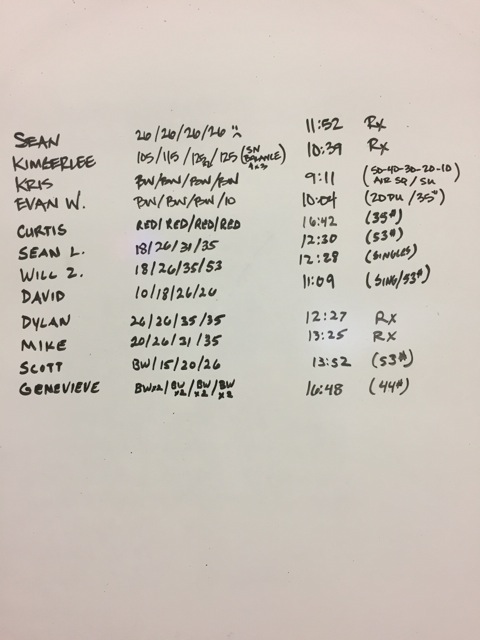 SEAN 26/26/26/26 :( 11:52 Rx
KIMBERLEE 105/115/125/125 (SN BALANCE 4x3) 10:39 Rx
KRIS BW/BW/BW/BW 9:11 (50-40-30-20-10 AIR SQ/SU)
EVAN W. BW/BW/BW/10 10:04 (20DU/35#)
CURTIS RED/RED/RED/RED 16:42 (35#)
SEAN L. 18/26/31/35 12:30 (53#)
WILL Z. 18/26/35/53 12:28 (SINGLES)
DAVID 10/18/26/26 11:09 (SING/53#)
DYLAN 26/26/35/35 12:27 Rx
MIKE 20/26/31/35 13:25 Rx
SCOTT BW/15/20/26 13:52 (53#)
GENEVIEVE BWx2/BWx2/BWx2/BWx2 16:48 (44#)